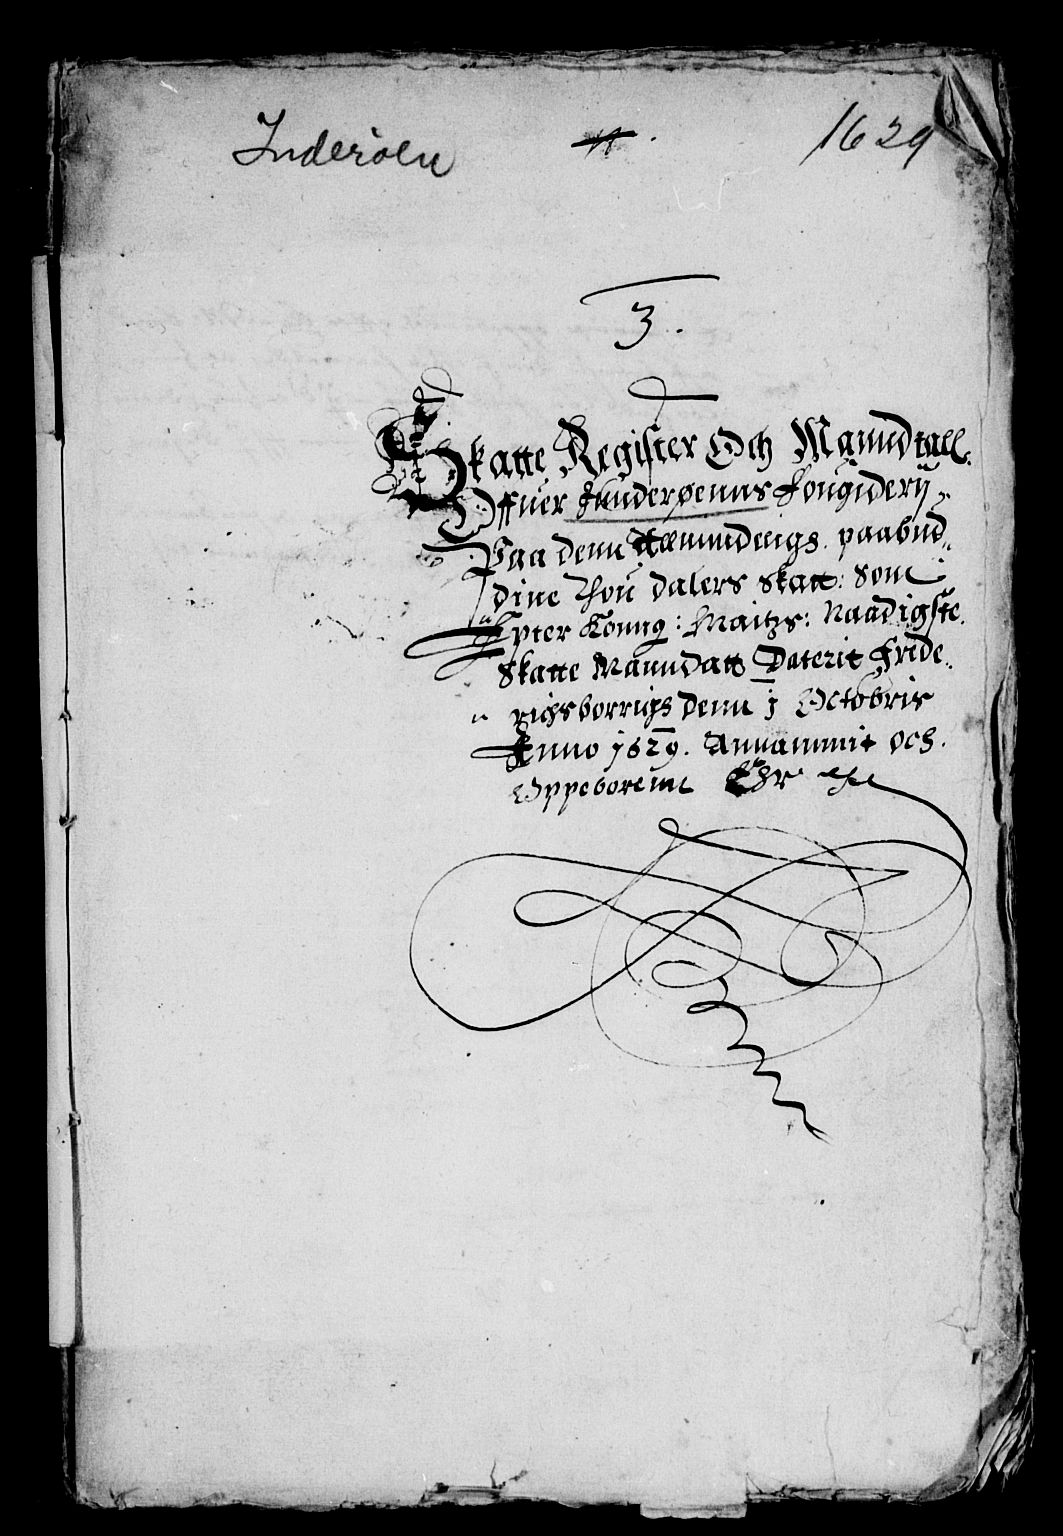 Inderöen 1629
3.
Skatte Register Och Manndtall
Offuer Inderøenns fougiderij
Paa denn Allmindeligs paabud
dine Thou dalers Skatt: Som
Epter Konng: Maitzs: Naadigste
Skatte Manndatt Daterit fride
richsborrigs denn j Octobris
Anno 1629. Annammit och
Oppeboremn Ehr